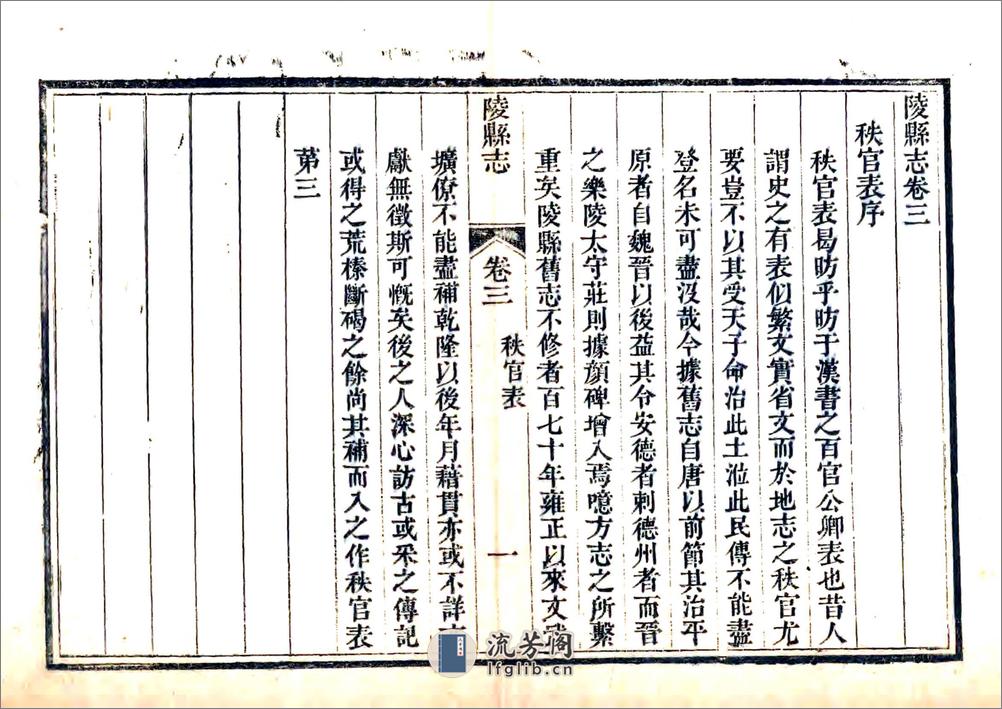 陵縣志卷三
秩官表序
秩官表曷昉乎昉于漢書之百官公卿表也昔人
謂史之有表似繁文實省文而於地志之秩官尤
要豈不以其受天子命治此土涖此民傳不能盡
登名未可盡沒哉今據舊志自唐以前節其治平
原者自魏晉以後益其令安德者刺德州者而晉
之樂陵太守莊則據顔碑增入焉噫方志之所繫
重矣陵縣舊志不修者百七十年雍正以來文
陵縣志
卷三
秩官表
一
壙僚不能盡補乾隆以後年月藉貫亦或不詳
獻無徵斯可慨矣後之人深心訪古或釆之傳記
或得之荒榛斷碣之餘尚其補而入之作秩官表
第三
流芳阁
lfglib.cn